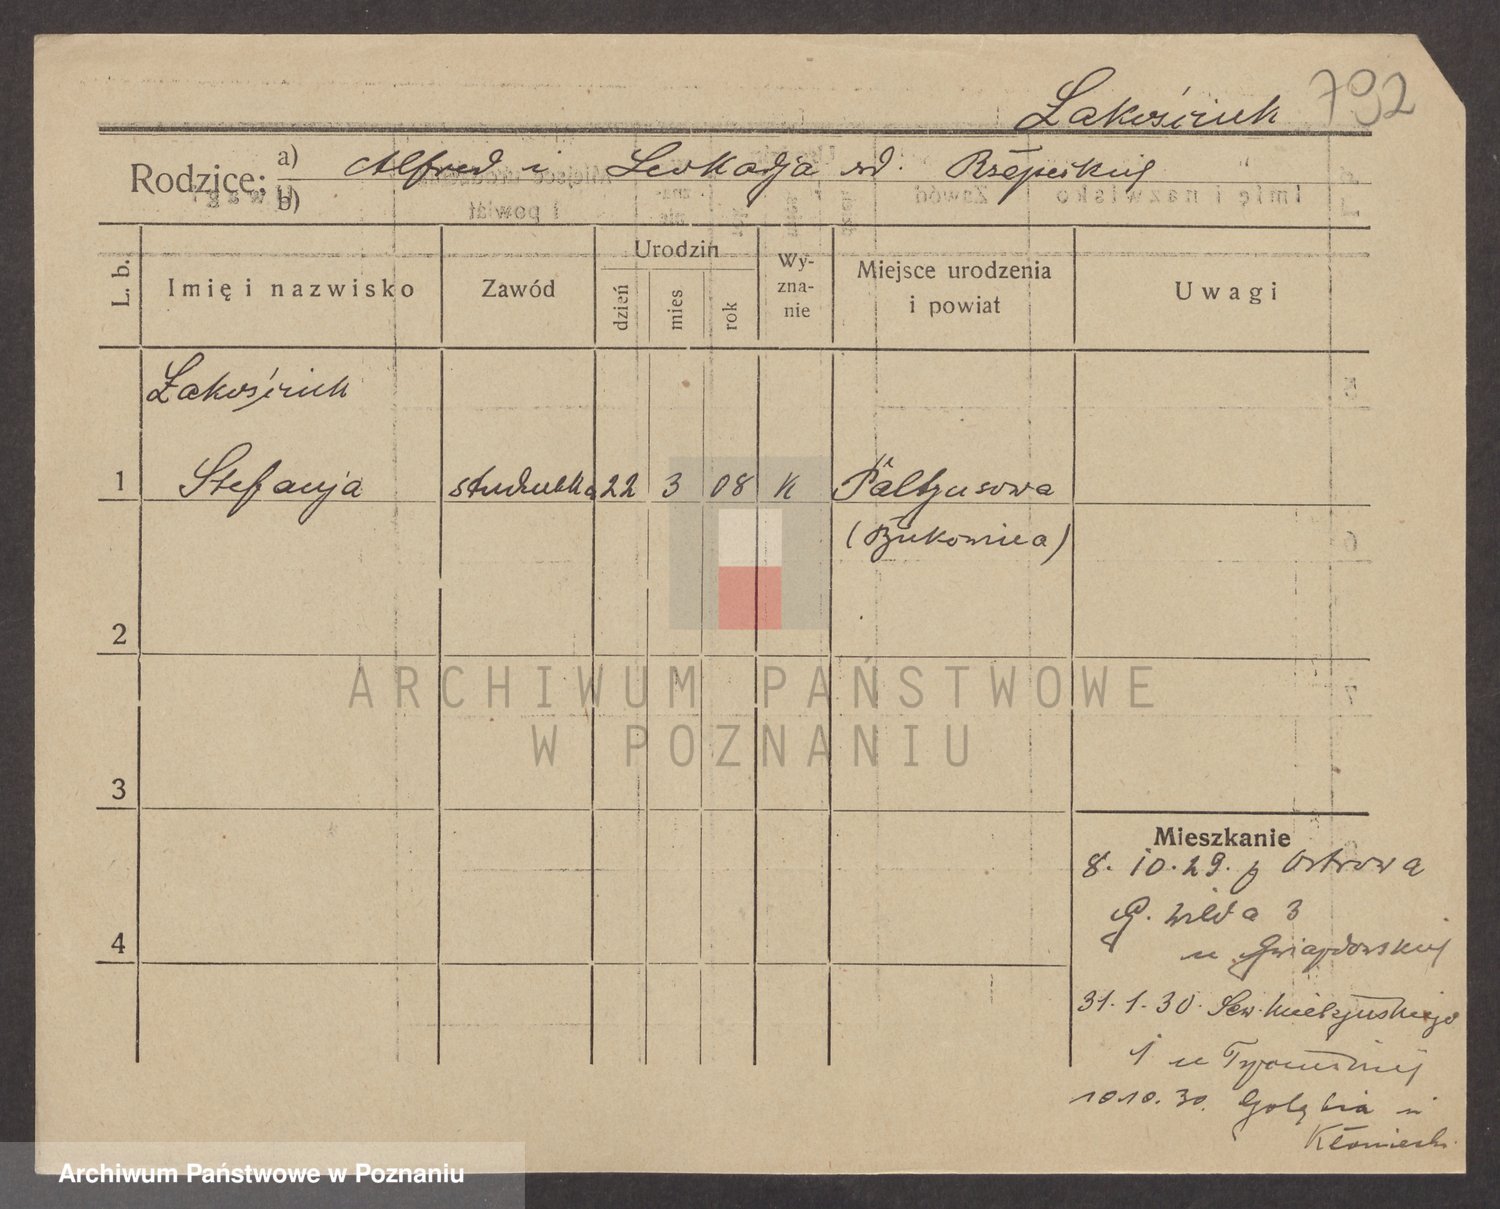 Żakościuk 792
Rodzice: a) Alfred i Leokadja rd. Rzepeskiej
b)
L. b.
Imię i nazwisko
Zawód
Urodzin
dzień
mies
rok
Wy-
zna-
nie
Miejsce urodzenia
i powiat
Uwagi
Żakościuk
1 Stefanja studentka 22 3 08 K Paltynosowa
(Bukowina)
2
3
4
Mieszkanie
8.10.29. z Ostrowa
G. Wilda 3
u Gwiazdowskiej
31.1.30. Sew. Mielżyńskiego
1 u
10.10.30. Gołębia
ARCHIWUM PAŃSTWOWE
W POZNANIU
Archiwum Państwowe w Poznaniu